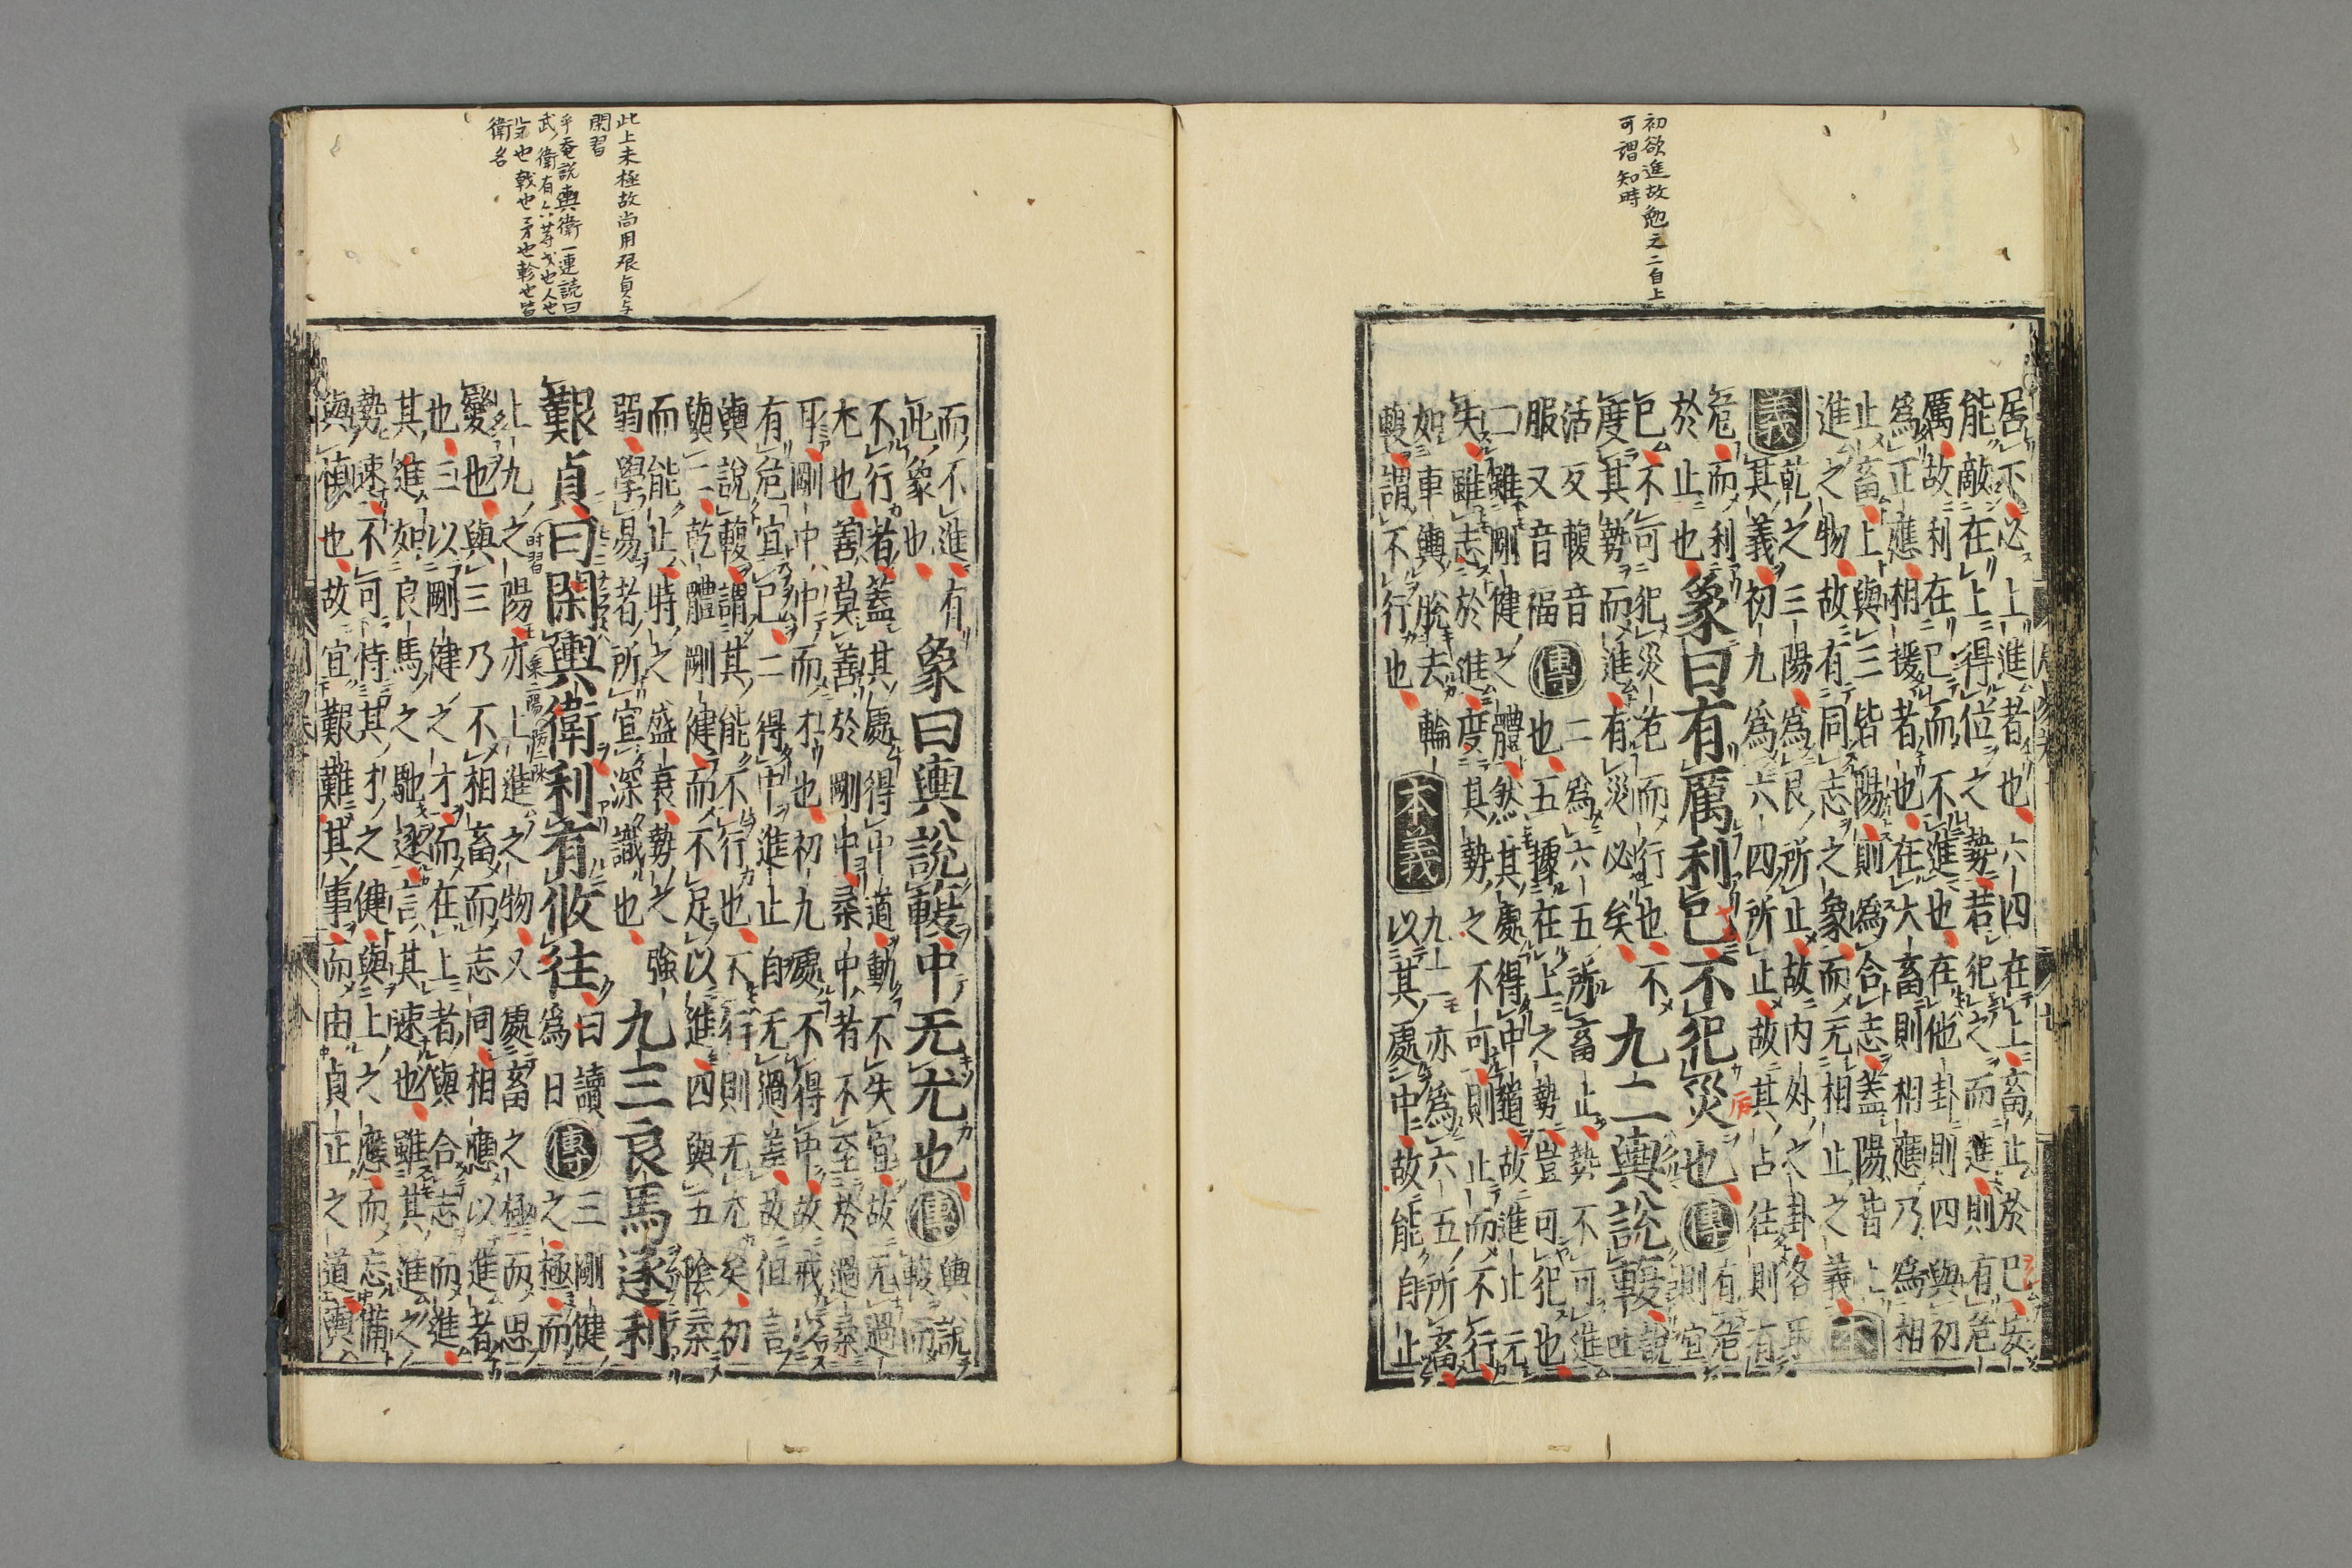 初欲進故勉之二自上
可謂知時
居下必上進者也六四在上畜止於已安
能敵在上得位之勢若犯之而進則有危
厲故利在已而不進也在他卦則四與初
為正應相援者也在大畜則相應乃為相
止畜上與三皆陽則為合志蓋陽皆上
進之物故有同志之象而无相止之義本
義乾之三陽為艮所止故內外之卦各取
其義初九為六四所止故其占往則有
危而利
於止也
象曰有厲利已不犯災也
傳有危
則宜
已不可犯災危而行也不
度其勢而進有災必矣
九二輿說輹
說吐
活反輹音
服又音福
傳二為六五所畜止勢不可進
也五據在上之勢豈可犯也
二雖剛健之體然其處得中道故進止无
失雖志於進度其勢之不可則止而不行
如車輿脫去輪
輹謂不行也
本義九二亦為六五所畜
以其處中故能自止
此上未極故尚用艱貞与
閑習
平菴說輿衛一連読曰
武衛有六等戈也人也
也戟也矛也軫也皆
衛名
而不進有
此象也
象曰輿說輹中无尤也
傳輿說
輹而
不行者蓋其處得中道動不失宜故无過
尤也善莫善於剛中柔中者不至於過柔
耳剛中中而才也初九處不得中故戒以
有危宜已二得中進止自无過差故但言
輿說輹謂其能不行也不行則无尤矣初
與二乾體剛健而不足以進四與五陰柔
而能止時之盛衰勢之強
弱學易者所宜深識也
九三良馬逐利
艱貞曰閑輿衛利有攸往
曰讀
為日
傳三剛健
之極而
上九之陽亦上進之物又處畜之極而思
變也與三乃不相畜而志同相應以進者
也三以剛健之才而在上者與合志而進
其進如良馬之馳逐言其速也雖其進之
勢速不可恃其才之健與上之應而忘備
與慎也故宜艱難其事而由貞正之道輿